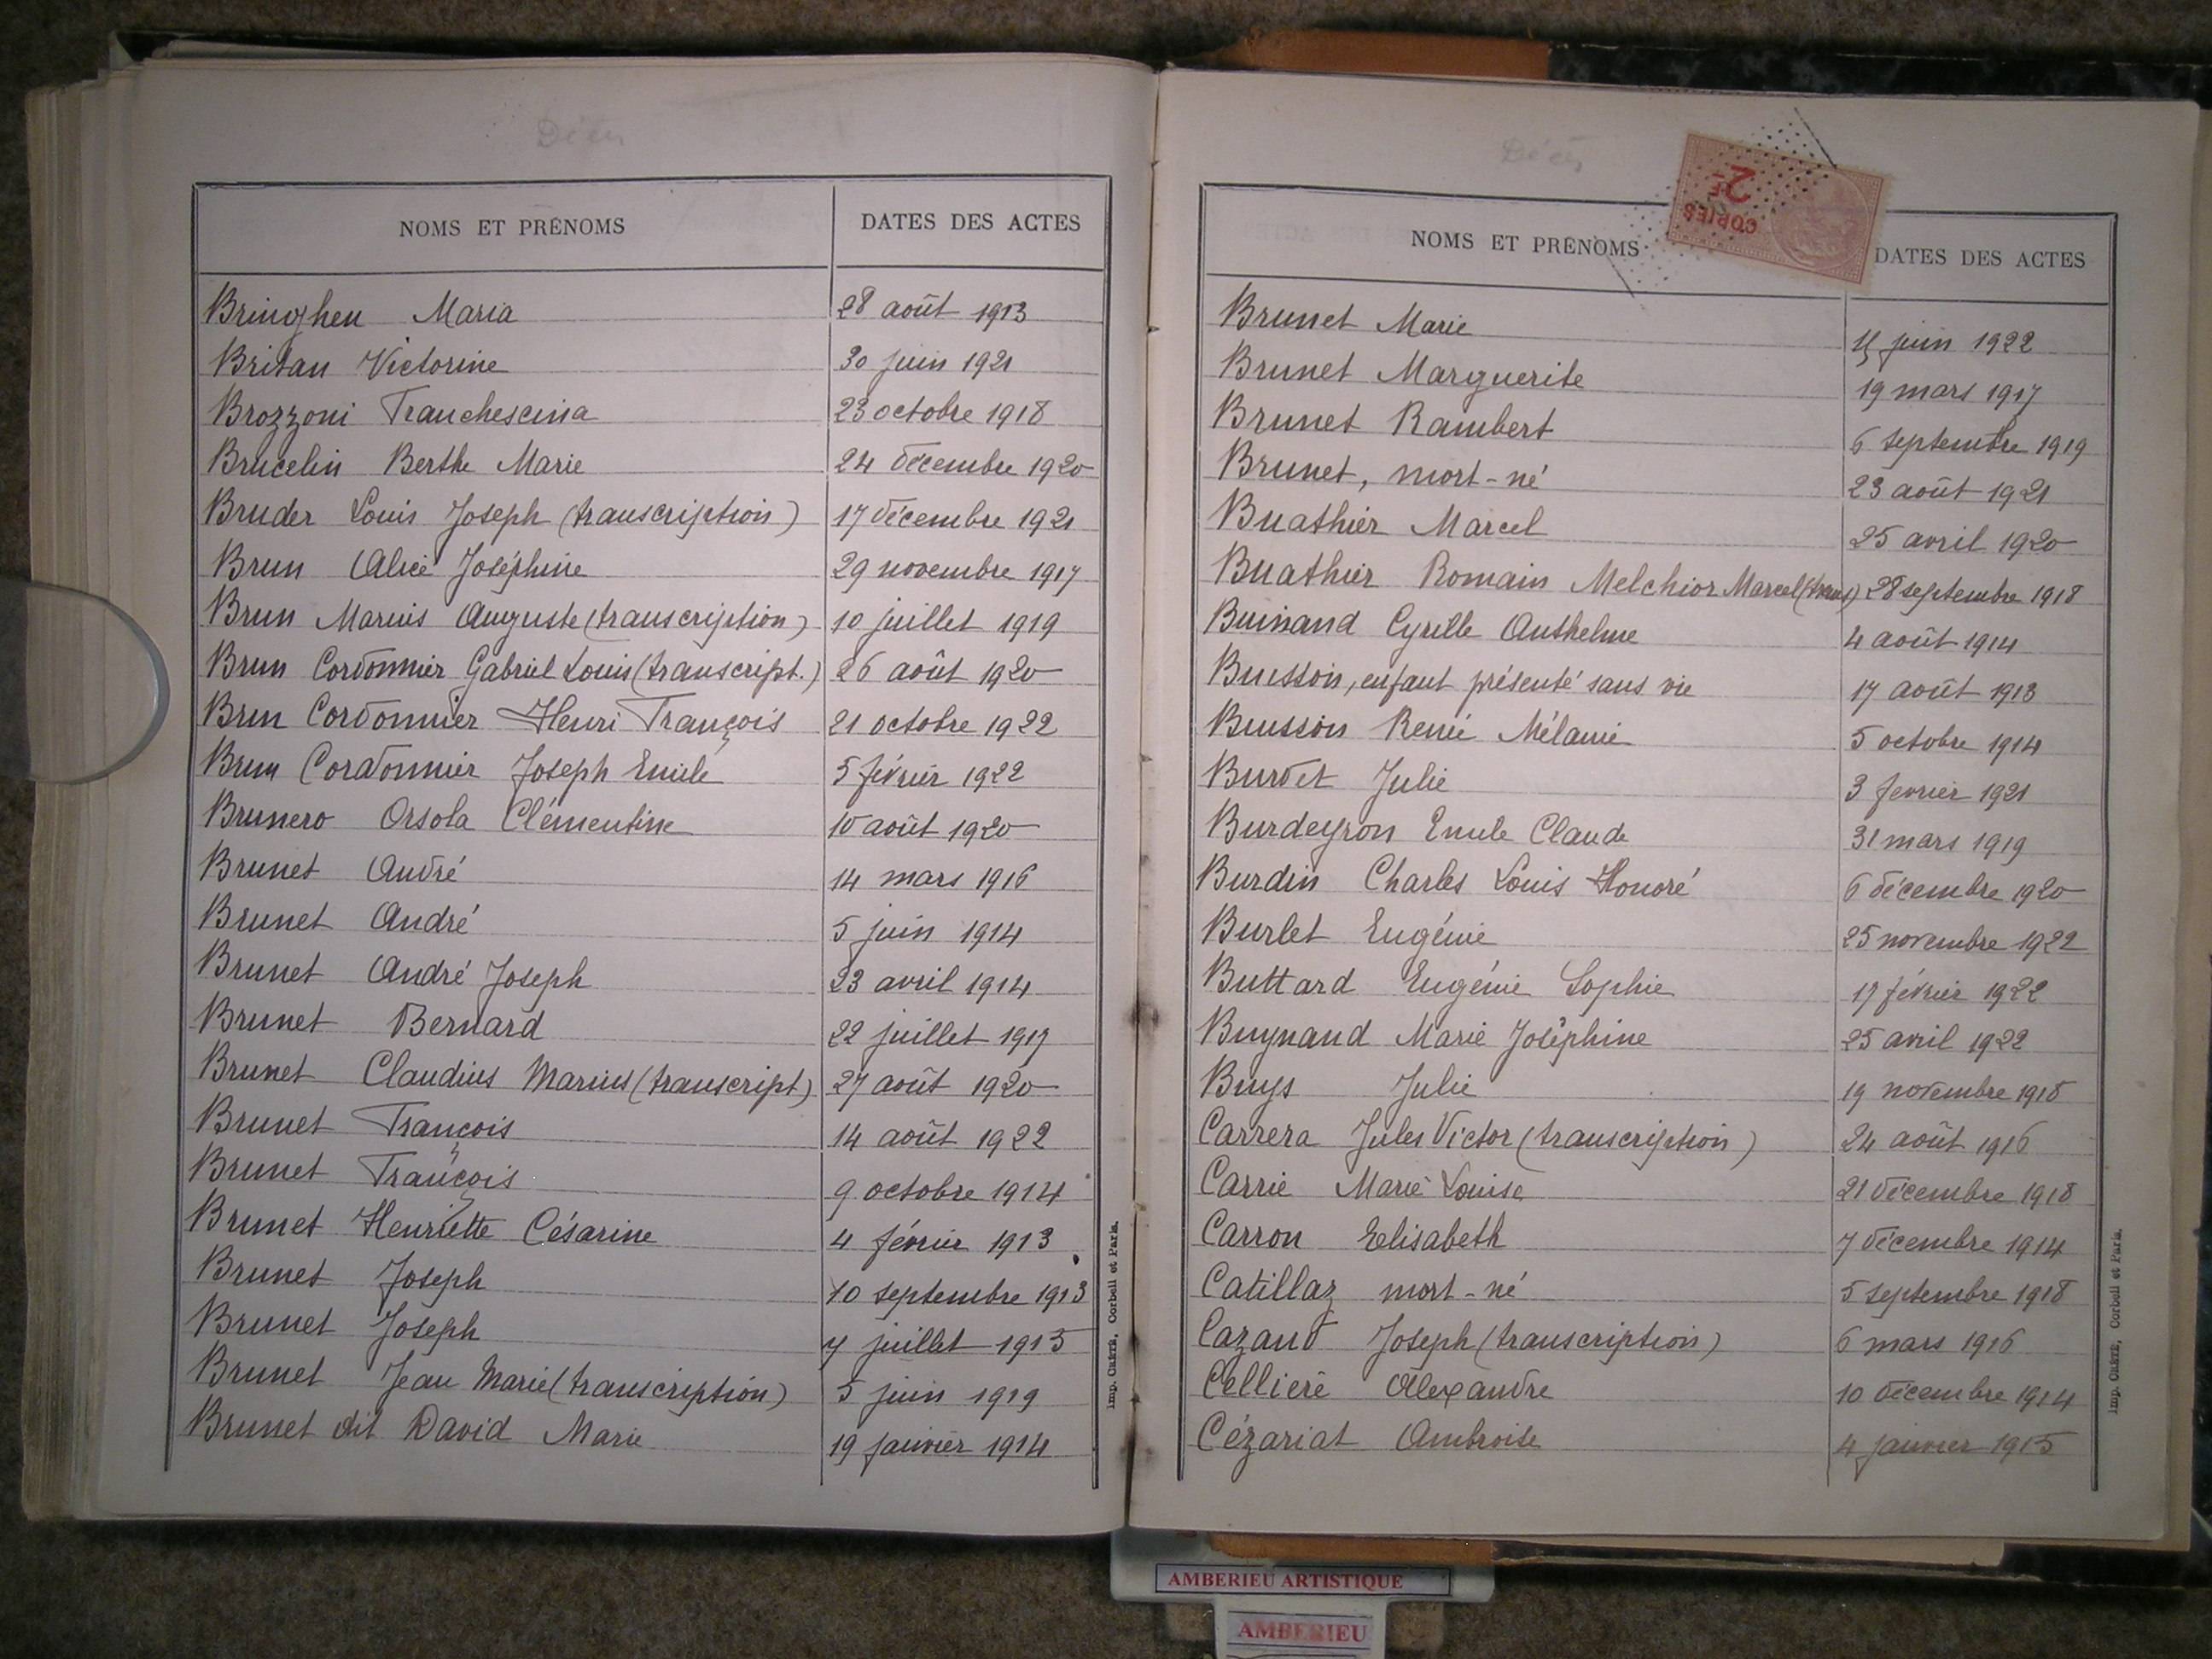 Décès
NOMS ET PRÉNOMS DATES DES ACTES
Bringhen Maria 28 août 1913
Britan Victorine 30 juin 1921
Brozzoni Franchescina 23 octobre 1918
Brucelin Berthe Marie 24 décembre 1920
Bruder Louis Joseph (transcription) 17 décembre 1921
Brun Alice Joséphine 29 novembre 1917
Brun Marius Auguste (transcription) 10 juillet 1919
Brun Cordonnier Gabriel Louis (transcript.) 26 août 1920
Brun Cordonnier Henri François 21 octobre 1922
Brun Cordonnier Joseph Emile 5 février 1922
Brunero Orsola Clémentine 10 août 1920
Brunet André 14 mars 1916
Brunet André 5 juin 1914
Brunet André Joseph 23 avril 1914
Brunet Bernard 22 juillet 1917
Brunet Claudius Marius (transcript) 27 août 1920
Brunet François 14 août 1922
Brunet François 9 octobre 1914
Brunet Henriette Césarine 4 février 1913
Brunet Joseph 10 septembre 1913
Brunet Joseph 7 juillet 1915
Brunet Jean Marie (transcription) 5 juin 1919
Brunet dit David Marie 19 janvier 1914
Imp. CRÉTÉ, Corbeil et Paris.
Décès
COPIES
2F
NOMS ET PRÉNOMS DATES DES ACTES
Brunet Marie juin 1922
Brunet Marguerite 19 mars 1917
Brunet Rambert 6 septembre 1919
Brunet, mort-né 23 août 1921
Buathier Marcel 25 avril 1920
Buathier Romain Melchior Marcel (trans) 28 septembre 1918
Buinand Cyrille Anthelme 4 août 1914
Buisson, enfant présenté sans vie 17 août 1913
Buisson René Mélanie 5 octobre 1914
Burdet Julie 3 fevrier 1921
Burdeyron Emile Claude 31 mars 1919
Burdin Charles Louis Honoré 6 décembre 1920
Burlet Eugénie 25 novembre 1922
Buttard Eugénie Sophie 17 février 1922
Buynand Marie Joséphine 25 avril 1922
Buys Julie 19 novembre 1918
Carrera Jules Victor (transcription) 24 août 1916
Carrie Marie Louise 21 décembre 1918
Carron Elisabeth 7 décembre 1914
Catillaz mort-né 5 septembre 1918
Cazaud Joseph (transcription) 6 mars 1916
Celliere Alexandre 10 décembre 1914
Cézariat Ambroise 4 janvier 1915
Imp. CRÉTÉ, Corbeil et Paris.
AMBERIEU ARTISTIQUE
AMBERIEU